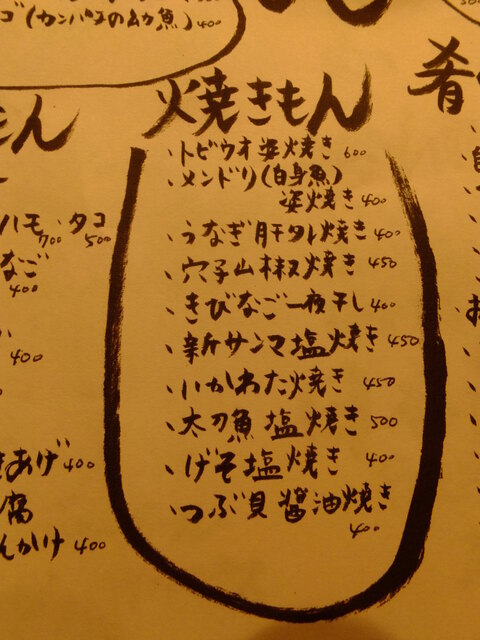 ゴ(カンパチの幼魚)400
焼きもん
、トビウオ姿焼き 600
、メンドリ(白身魚)
姿焼き 400
、うなぎ肝タレ焼き 400
、穴子山椒焼き 450
、きびなご一夜干し 400
、新サンマ塩焼き 450
、いかわた焼き 450
、太刀魚塩焼き 500
、げそ塩焼き 400
、つぶ貝醤油焼き
400
もん
ハモ、タコ
700 500
なご
400
400
きあげ 400
腐
んかけ 400
肴